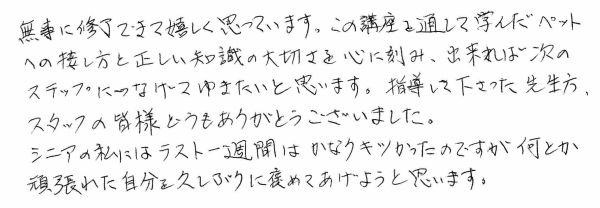 無事に修了できて嬉しく思っています。この講座を通して学んだペット
への接し方と正しい知識の大切さを心に刻み、出来れば次の
ステップにつなげてゆきたいと思います。指導して下さった先生方、
スタッフの皆様どうもありがとうございました。
シニアの私にはラスト一週間はかなりキツかったのですが何とか
頑張れた自分を久しぶりに褒めてあげようと思います。